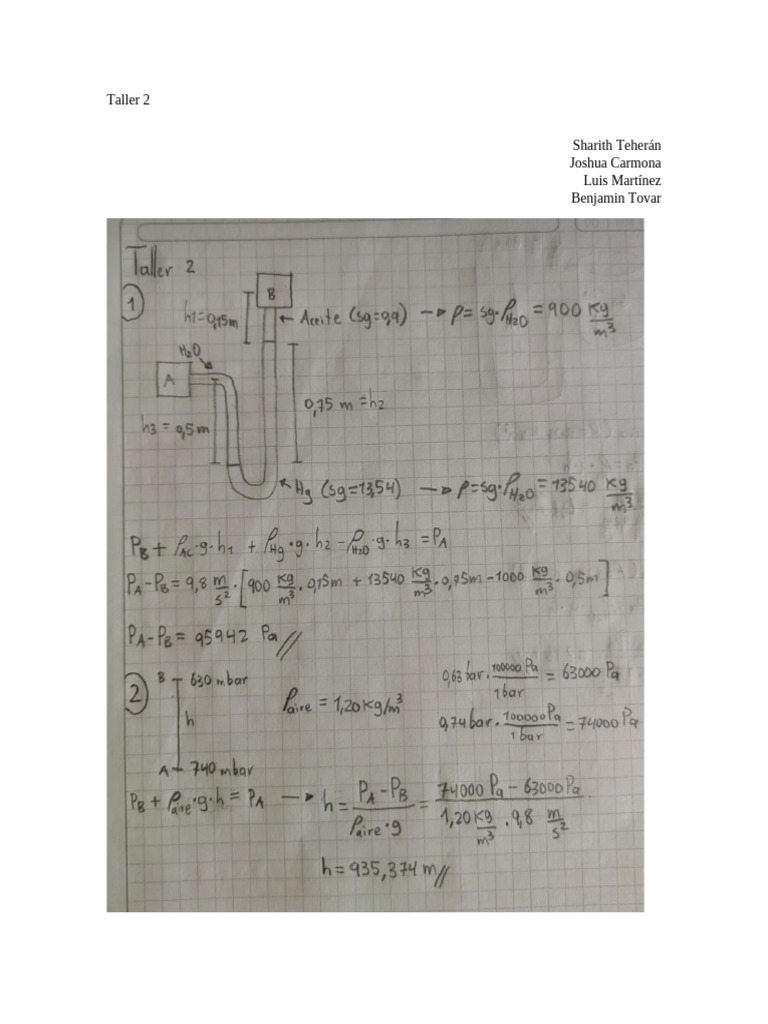 Taller 2
Sharith Teherán
Joshua Carmona
Luis Martínez
Benjamin Tovar
Taller 2
1
B
h1=0,15m
← Aceite (sg=0,9) → ρ= sg·ρH2O = 900 Kg/m³
H2O
A
0,75 m =h2
h3 = 0,5m
Hg (sg=13,54) → ρ=sg·ρH2O = 13540 Kg/m³
PB + ρAC·g·h1 + ρHg·g·h2 - ρH2O·g·h3 = PA
PA-PB = 9,8 m/s² · [900 Kg/m³ · 0,15m + 13540 Kg/m³ · 0,75m - 1000 Kg/m³ · 0,5m]
PA-PB = 95942 Pa//
2
B 630 mbar
h
A 740 mbar
ρaire = 1,20 Kg/m³
0,63 bar · 100000 Pa/1 bar = 63000 Pa
0,74 bar · 100000 Pa/1 bar = 74000 Pa
PB + ρaire·g·h = PA → h = PA-PB/ρaire·g = 74000 Pa - 63000 Pa/1,20 Kg/m³ · 9,8 m/s²
h = 935,374 m//